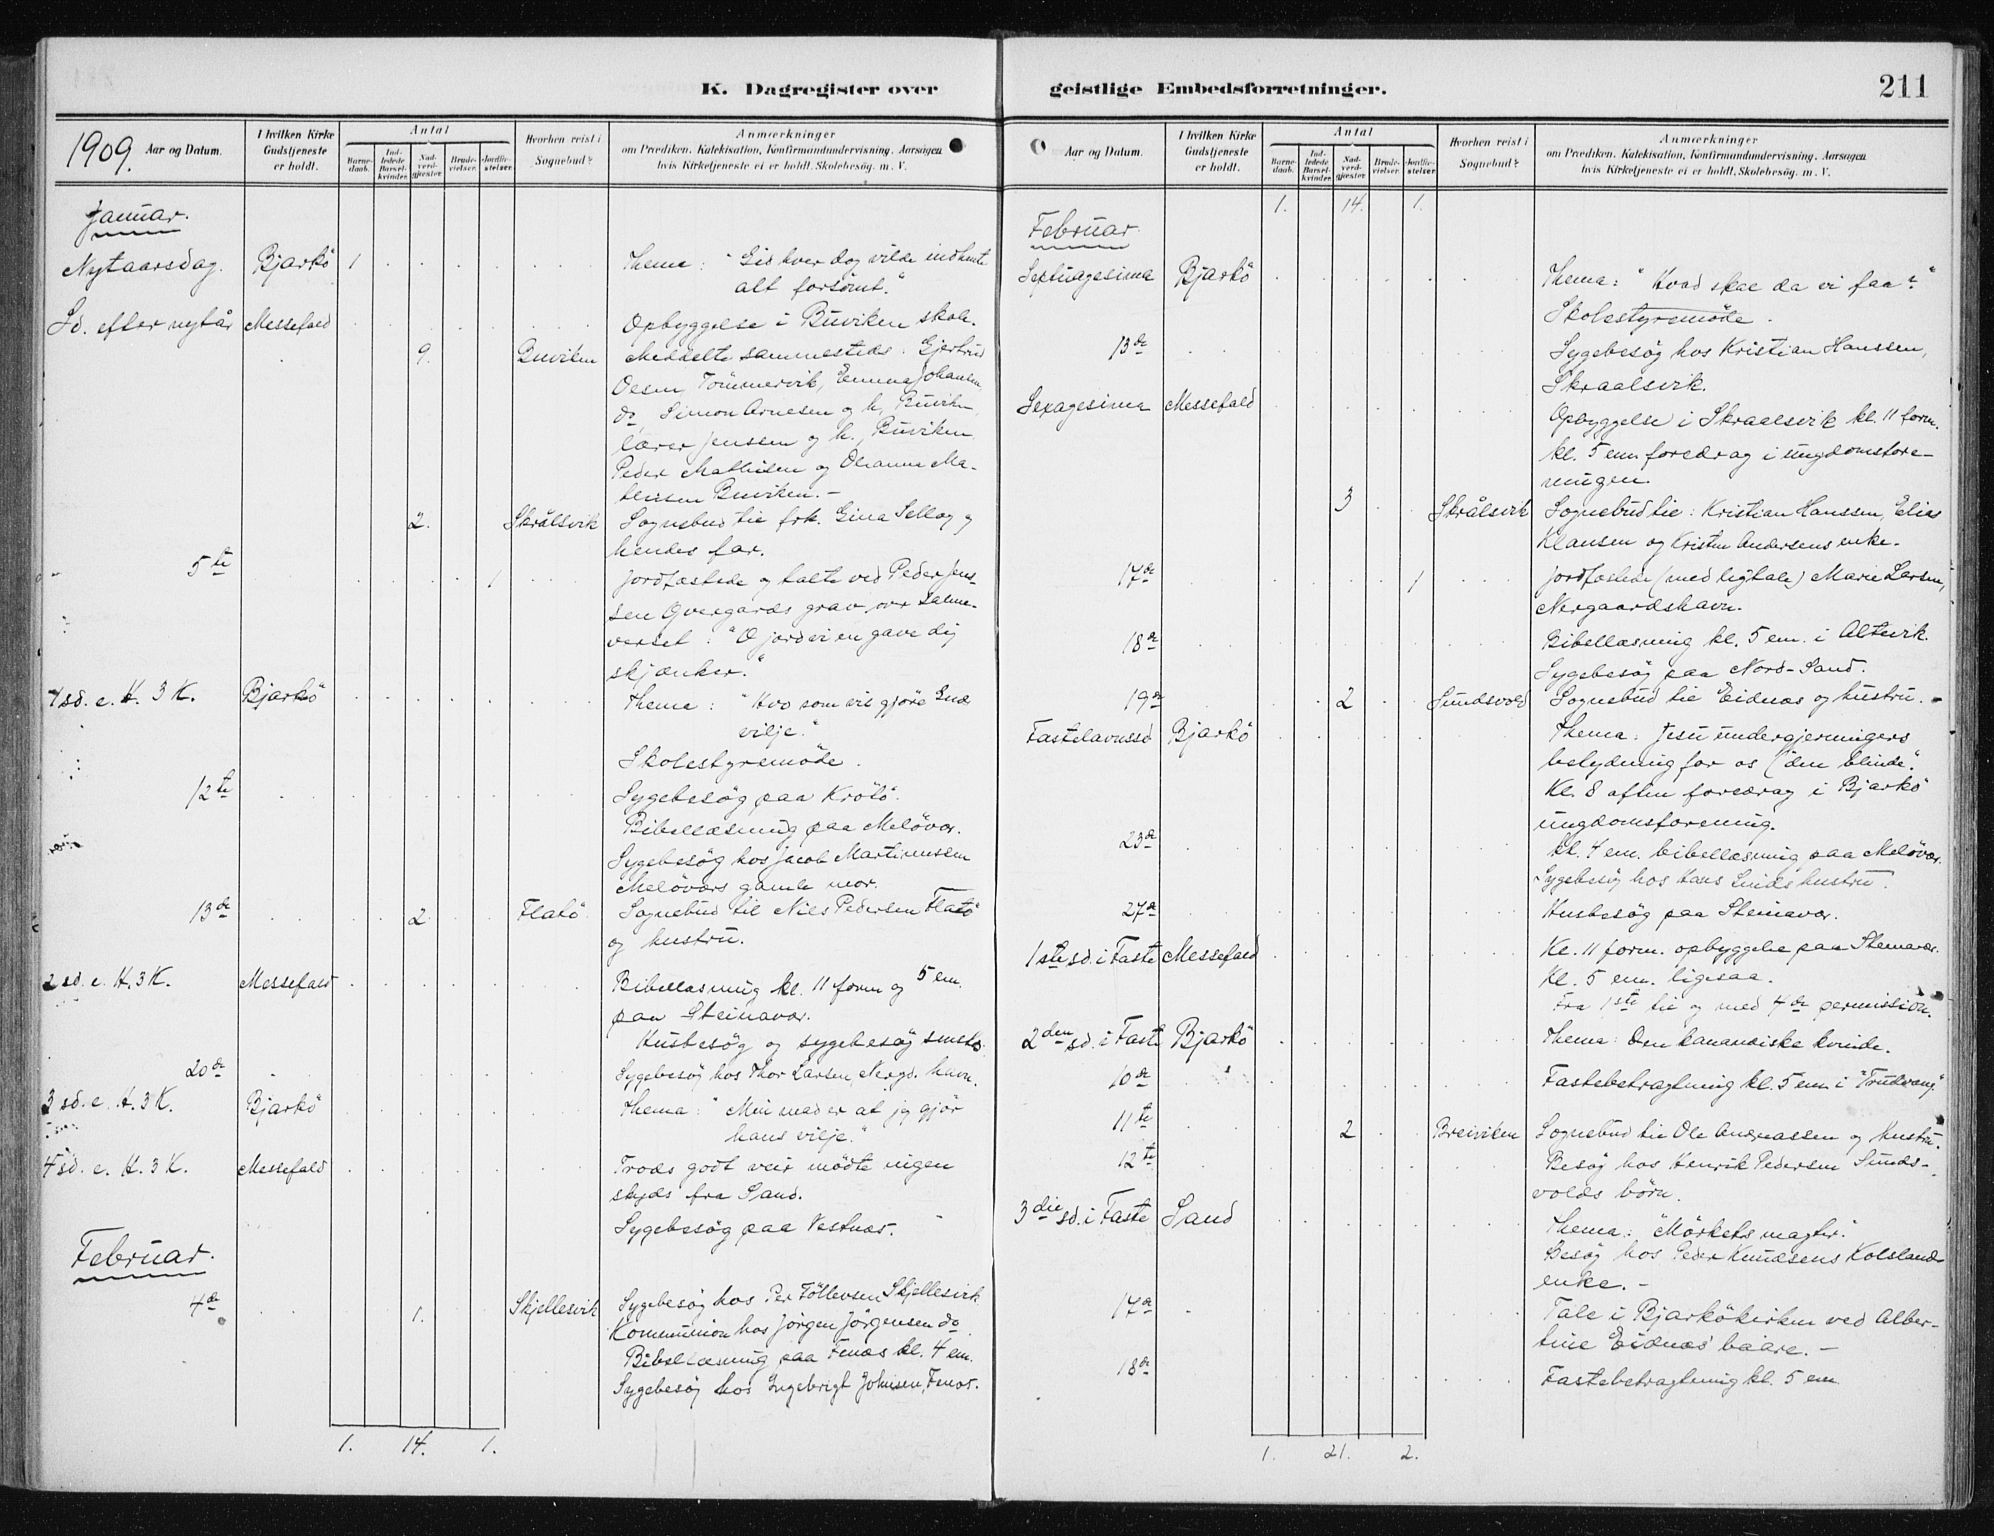 K. Dagregister over
1909. Aar og Datum.
I hvilken Kirke Gudstjeneste er holdt.
Antal
Barnedaab.
Indledede Barselkvinder
Nadverdgjæster
Brudevielser.
Jordfæstelser
Hvorhen reist i Sognebud?
Anmærkninger
om Prædiken, Katekisation, Konfirmandundervisning, Aarsagen
hvis Kirketjeneste ei er holdt, Skolebesøg, m. V.
Januar.
Nytaarsdag. Bjarkö 1 Thema: "Gid hver dag vilde indhente
alt forsömt."
Sd. efter nytår Messefald Opbyggelse i Buviken skole.
9. Buviken Meddelte sammesteds: Gjertrud
Olsen, Tömmervik, Emma Johansen
do, Simon Arnesen og h., Buviken,
lærer Jenssen og h., Buviken,
Peder Mathisen og Oleanna Ma-
thisen Buviken. -
2. Skrålsvik Sognebud til frk. Gina Sellæg og
hendes far.
5te 1 Jordfæstede og talte ved Peder Jens-
sen Övergaards grav, over salme-
verset: "O jord vi en gave dig
skjænker."
1 sd. e. H. 3 K. Bjarkö Thema: "Hvo som vil gjöre Guds
vilje."
Skolestyremöde.
12te Sygebesög paa Krötö.
Bibellæsning paa Melövær.
Sygebesög hos Jacob Martinussen
Melöværs gamle mor.
13de 2 Flatö Sognebud til Nils Pedersen Flatö
og hustru.
2 sd. e. H. 3 K. Messefald Bibellæsning kl. 11 form og 5 em.
paa Steinavær.
Husbesög og sygebesög smsts.
20de Sygebesög hos Thor Larsen, Nergd. havn.
3 sd. e. H. 3 K. Bjarkö Thema: "Min mad er at jeg gjör
hans vilje."
4 sd. e. H. 3 K. Messefald Trods godt veir mödte ingen
skyds fra Sand.
Sygebesög paa Vestnes.
Februar.
4de 1. Skjellesvik Sygebesög hos Per Föllevsen Skjellesvik
Kommunion hos Jörgen Jörgensen do
Bibellæsning paa Fenes kl. 4 em.
Sygebesög hos Ingebrigt Johnsen, Fenes.
1. 14. 1.
geistlige Embedsforretninger.
211
Aar og Datum.
I hvilken Kirke Gudstjeneste er holdt.
Antal
Barnedaab.
Indledede Barselkvinder
Nadverdgjæster
Brudevielser.
Jordfæstelser
Hvorhen reist i Sognebud?
Anmærkninger
om Prædiken, Katekisation, Konfirmandundervisning, Aarsagen
hvis Kirketjeneste ei er holdt, Skolebesøg, m. V.
1. 14. 1.
Februar
Septuagesima Bjarkö Thema: "Hvad skal da vi faa?"
Skolestyremöde.
13de Sygebesög hos Kristian Hanssen,
Skraalsvik.
Sexagesima Messefald Opbyggelse i Skraalsvik kl. 11 form.
kl. 5 em. foredrag i ungdomsfore-
ningen.
3 Skrålsvik Sognebud til: Kristian Hanssen, Elias
Klausen og Kristen Andersens enke.
17de 1 Jordfæstede (med ligtale) Marie Larsen,
Nergaardshavn.
18de Bibellæsning kl. 5 em. i Altevik.
Sygebesög paa Nord-Sand.
19de 2 Sundsvold Sognebud til Eidnes og hustru. -
Fastelavnssd Bjarkö Thema: Jesu undergjerningers
betydning for os (den blinde".
Kl. 8 aften foredrag i Bjarkö
ungdomsforening.
23de kl. 4 em. bibellæsning paa Melövær.
Sygebesög hos Hans Linds hustru.
27de Husbesög paa Steinavær.
1ste sd. i Faste Messefald Kl. 11 form. opbyggelse paa Steinavær.
Kl. 5 em. ligesaa.
Fra 1ste til og med 4de permission.
2den sd. i Faste Bjarkö Thema: Den kananæiske kvinde.
10de " Fastebetragtning kl. 5 em. i "Trudvang"
11te 2 Breiviken Sognebud til Ole Andreassen og hustru.
12te Besög hos Henrik Pedersen Sunds-
volds börn.
3die sd. i Faste Sand Thema: "Mörkets magter".
Besög hos Peder Knudsens Kolslands
enke. -
17de Tale i Bjarkökirken ved Alber-
tine Eidnes' baare. -
18de Fastebetragtning kl. 5 em.
1. 21. 2.